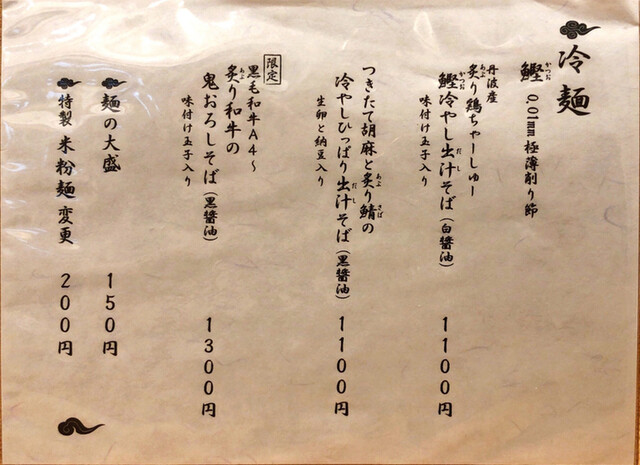 冷麺
鰹 0.01mm 極薄削り節
丹波産
炙り鶏ちゃーしゅー
鰹冷やし出汁そば（白醤油） 1100円
味付け玉子入り
つきたて胡麻と炙り鯖の
冷やしひっぱり出汁そば（黒醤油） 1100円
生卵と納豆入り
限定
黒毛和牛A4〜
炙り和牛の
鬼おろしそば（黒醤油） 1300円
味付け玉子入り
麺の大盛 150円
特製 米粉麺変更 200円